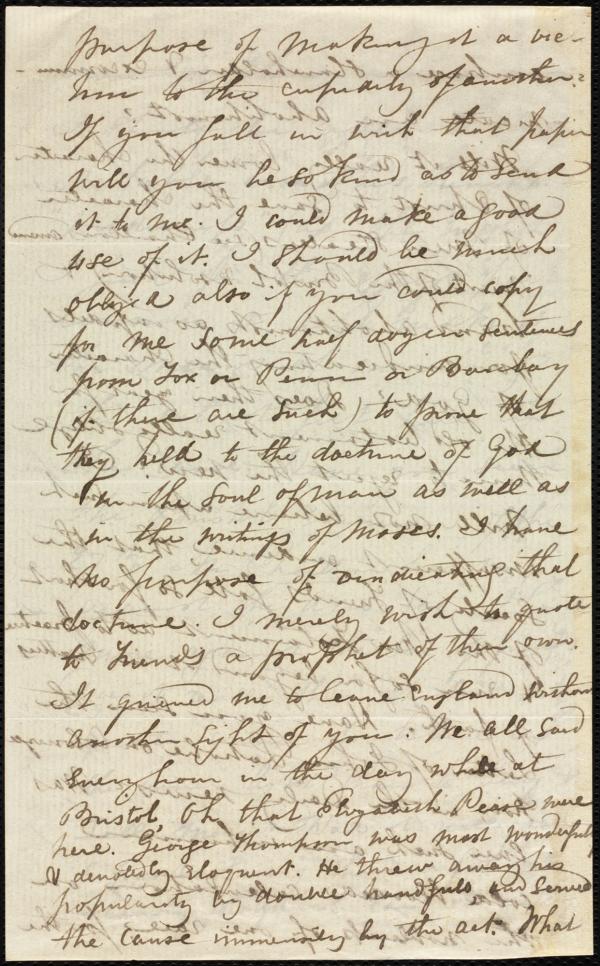 purpose of making it a vic-
tim to the cupidity of another.
If you fall in with that paper
will you be so kind as to send
it to me. I could make a good
use of it. I should be much
obliged also if you could copy
for me some half dozen sentences
from Fox or Penn or Barclay
(if there are such) to prove that
they held to the doctrine of God
in the soul of man as well as
in the writings of Moses. I have
no purpose of vindicating that
doctrine. I merely wish to quote
to Friends a prophet of their own.
It grieved me to leave England without
another sight of you. We all said
every hour in the day while at
Bristol, Oh that Elizabeth Pease were
here. George Thompson was most wonderfully
& devotedly eloquent. He threw away his
popularity by double handfuls and served
the cause immensely by the act. What